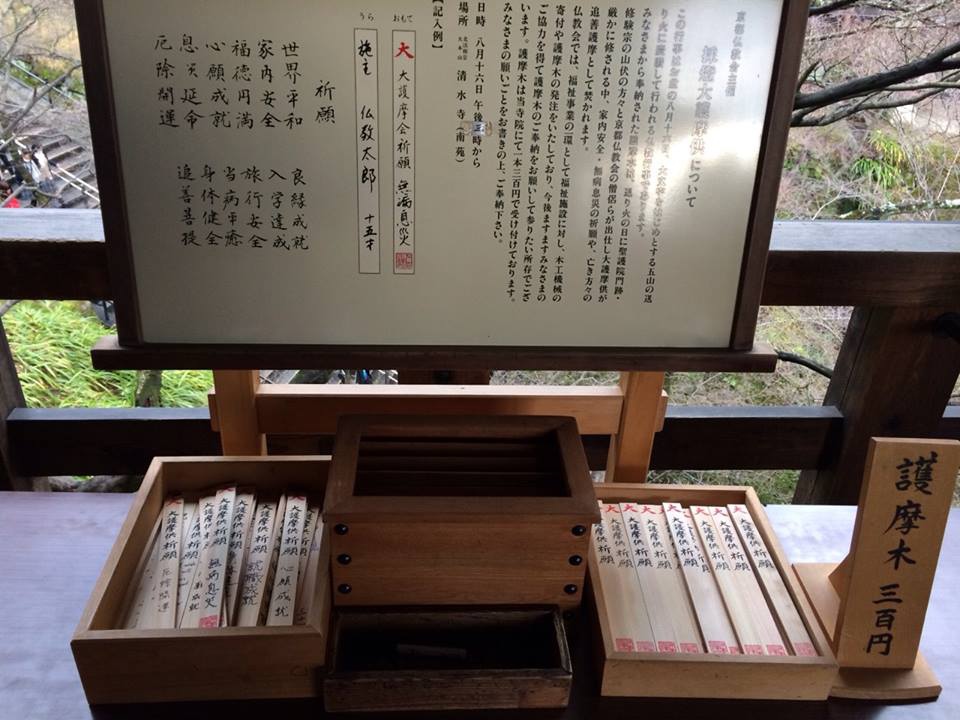 京都仏教会主催
採燈大護摩供について
この行事はお盆の八月十六日、大文字をはじめとする五山の送
り火に
みなさまから奉納された護摩木は、送り火の日に聖護院門跡・
修験宗の山伏の方々と京都仏教会の僧侶らが出仕し大護摩供が
厳かに修される中、家内安全・無病息災の祈願や、亡き方々の
追善護摩として焚かれます。
仏教会では、福祉事業の一環として福祉施設に対し、木工機械の
寄付や護摩木の発注をいたしており、今後ますますみなさまの
ご協力を得て護摩木のご奉納をお願いして参りたい所存でござ
います。護摩木は当寺院にて一本三百円で受け付けております。
みなさまの願いごとをお書きの上、ご奉納下さい。
日時 八月十六日 午後三時から
場所 北法相宗大本山 清水寺(南苑)
【記入例】
おもて
大 大護摩会祈願 無病息災
うら
施主 仏教太郎 十五才
祈願
世界平和 良縁成就
家内安全 入学達成
福徳円満 旅行安全
心願成就 当病平癒
息災延命 身体健全
厄除開運 追善菩提
護摩木 三百円
大 大護摩供祈願
大 大護摩供祈願
大 大護摩供祈願
大 大護摩供祈願
大 大護摩供祈願
大 大護摩供祈願
大 大護摩供祈願
大護摩供祈願 心願成就
大護摩供祈願 就職成就
大 大護摩供祈願 無病息災
大 大護摩供祈願 厄除開運